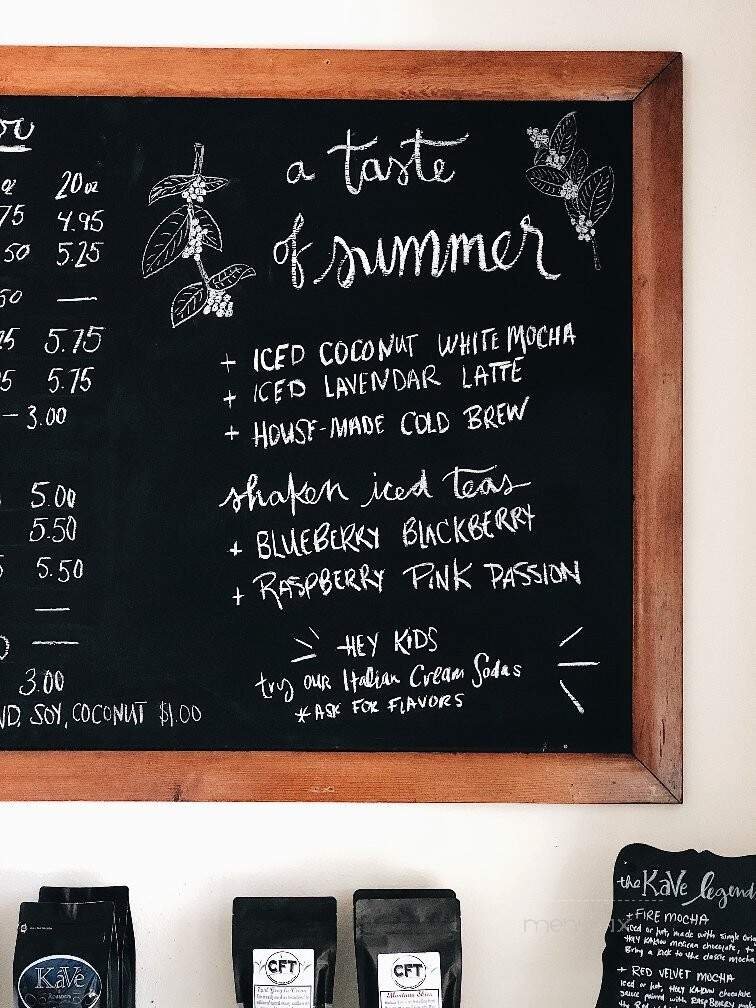 oz 20oz
75 4.95
50 5.25
50 —
5.75
5 5.75
— 3.00
5.00
5.50
5.50
—
—
3.00
SOY, COCONUT $1.00
a taste
of summer
+ ICED COCONUT WHITE MOCHA
+ ICED LAVENDAR LATTE
+ HOUSE-MADE COLD BREW
shaken iced teas
+ BLUEBERRY BLACKBERRY
+ RASPBERRY PINK PASSION
HEY KIDS
try our Italian Cream Sodas
*ASK FOR FLAVORS
KaVe
ROASTERS
CFT
CFT
the KaVe legend
+ FIRE MOCHA
iced or hot, made with single
mexican chocolate, to
Bring a kick to the classic mocha
+ RED VELVET MOCHA
Iced or hot, chocolate
sauce